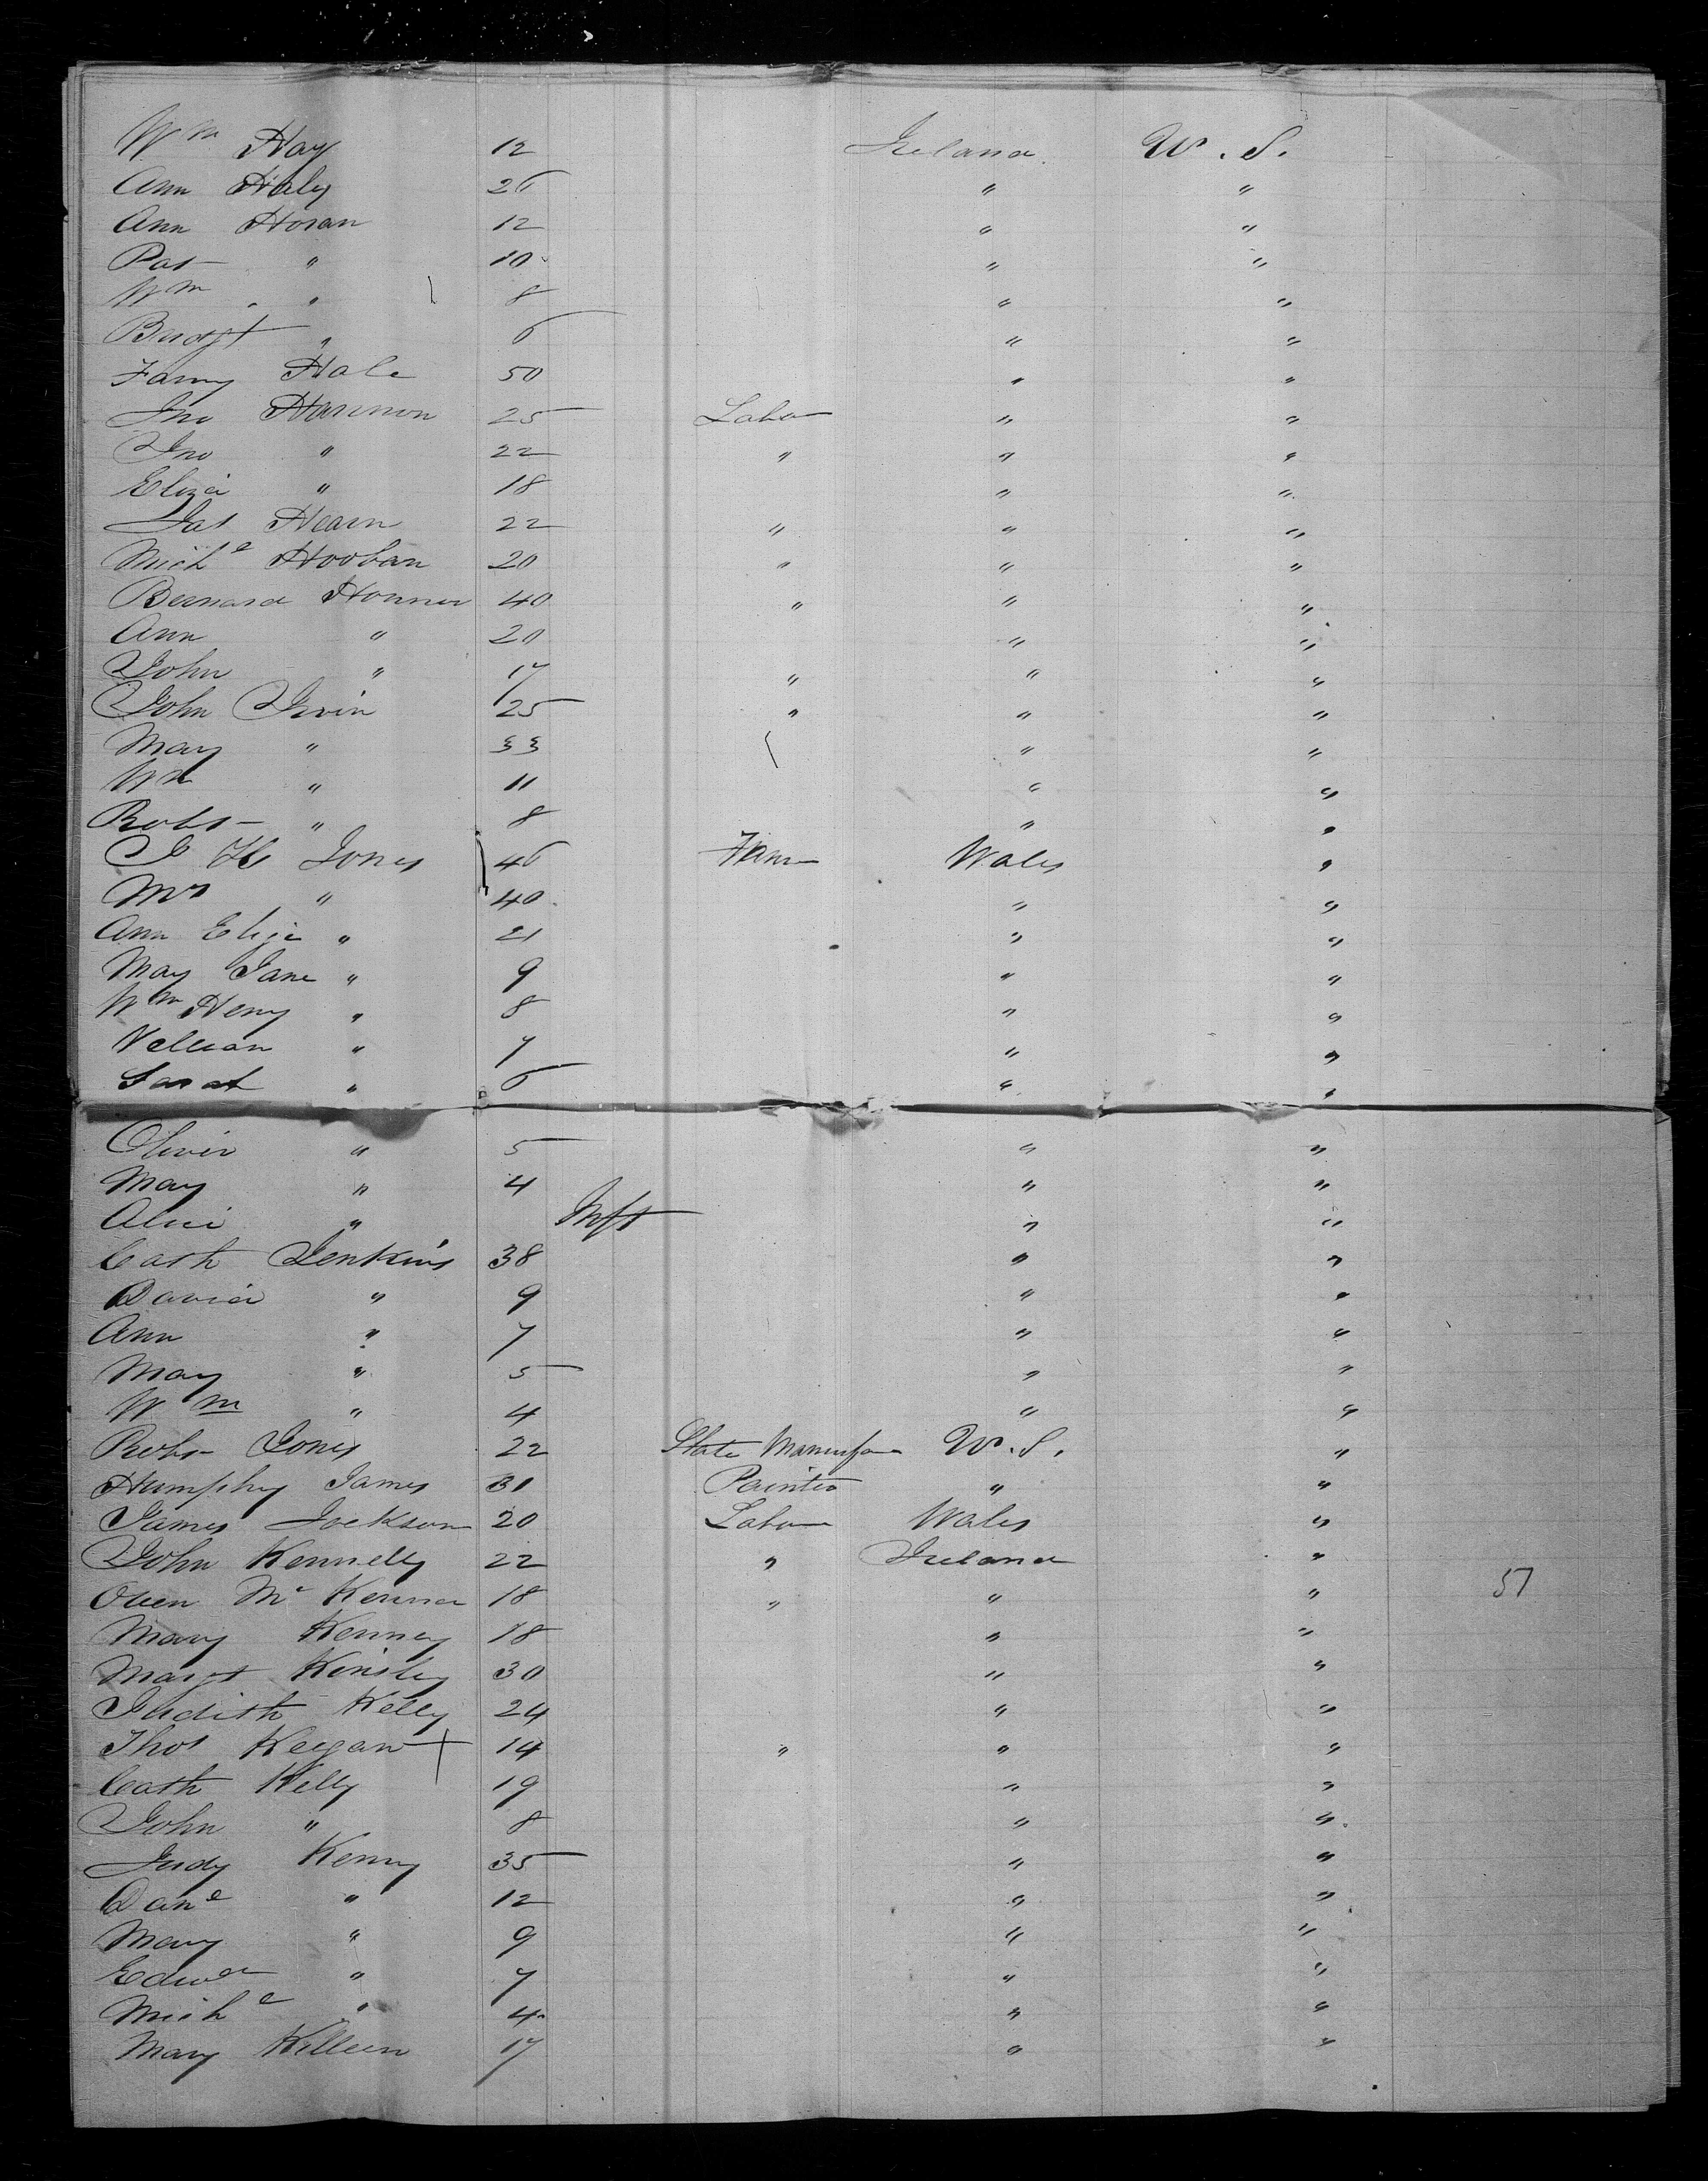 Wm Hay 12 Ireland U. S.
Ann Haly 26 " "
Ann Horan 12 " "
Pat " 10 " "
Wm " 8 " "
Bridgt " 6 " "
Fanny Hale 50 " "
Jno Hannon 25 Labor " "
Jno " 22 " " "
Eliza " 18 " "
Jas Hearn 22 " " "
Michl Hooban 20 " " "
Bernard Honner 40 " " "
Ann " 20 " "
John " 17 " " "
John Irvin 25 " " "
Mary " 33 " "
Wm " 11 " "
Robt " 8 " "
J H Jones 46 Farmr Wales "
Mrs " 40 " "
Ann Eliza " 21 " "
Mary Jane " 9 " "
Wm Henry " 8 " "
" 7 " "
Sarah " 6 " "
Oliver " 5 " "
Mary " 4 " "
Alice " Inft " "
Cath Jenkins 38 " "
David " 9 " "
Ann " 7 " "
Mary " 5 " "
Wm " 4 " "
Robt Jones 22 Slate U. S. "
Humphry James 31 Painter " "
James Jackson 20 Labor Wales "
John Kennelly 22 " Ireland "
Owen Mc Kenna 18 " " " 57
Mary Kenney 18 " "
Margt Kinsley 30 " "
Judith Kelly 24 " "
Thos Keegan 14 " " "
Cath Kelly 19 " "
John " 8 " "
Judy Kenny 35 " "
Danl " 12 " "
Mary " 9 " "
Edwd " 7 " "
Michl " 4 " "
Mary Killeen 17 " "